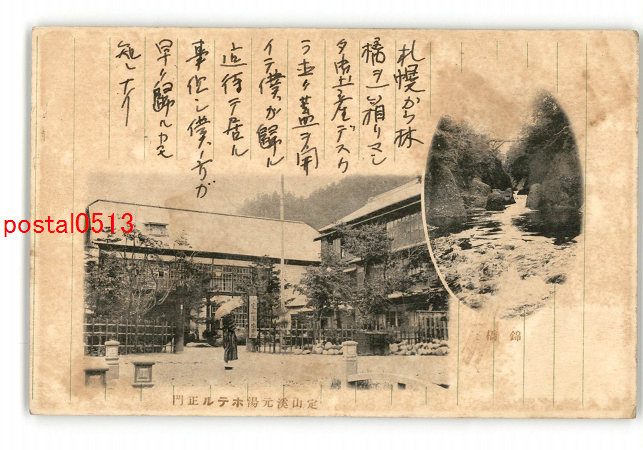 札幌から林
橘ヲ一箱リマシ
タ出産デスク
ラ
蓋ヲ開
イテ僕ガ歸ル
迄待テ居ル
事但シ僕ノ方ガ
早ク歸ルカモ
知レナイ
postal0513
錦橋
定山溪元湯ホテル正門